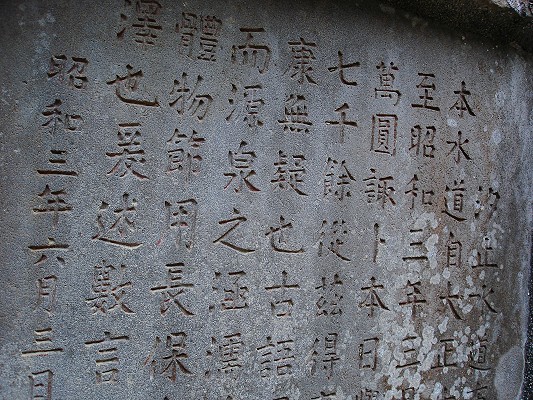 汐止水道
本水道自大正
至昭和三年三月
萬圓諏卜本日
七千餘從茲得
康無疑也古語
而源泉之涵濡
體物節用長保
澤也爰述數言
昭和三年六月三日